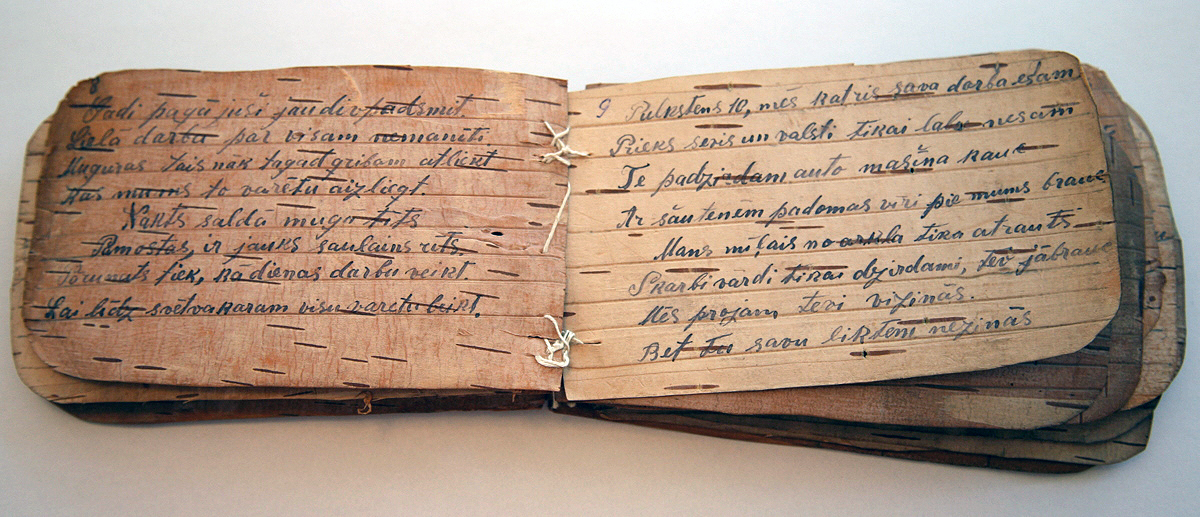 8
Gadi pagājuši jau divpadsmit.
Lielā darbu par visam nemanīti
Muguras tais nāk tagad gribam atliekt
Kas mums to varētu aizliegt.
Nakts salda muga tīts
Pamostas, ir jauks saulains rīts.
tiek, kā dienas darbu veikt
Lai līdz svētvakaram visu varētu beikt.
9 Pulkstens 10, mēs katris sava darbā esam
Prieks sevis un valsti tikai labu nesam
Te padzirdam auto mašīna kauc
Ar šautenēm padomas vīri pie mums brauc
Mans mīļais no arkla tika atrauts
Skarbi vardi tikai dzirdami, tev jābrauc
Mēs projam tevi vizinās.
Bet tu savu likteni nezinās